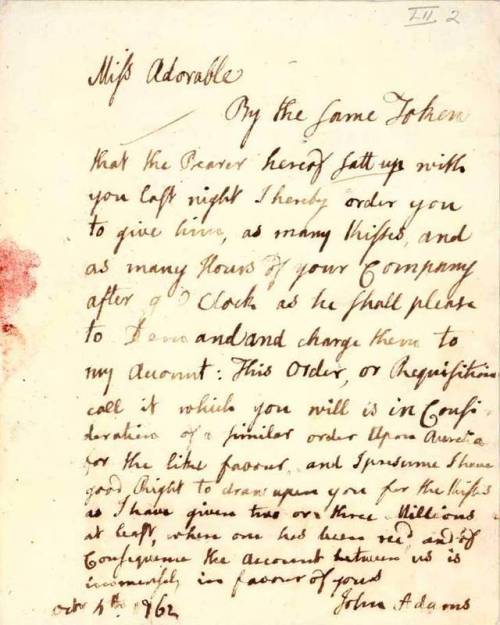 LII 2
Miſs Adorable
By the same Token
that the Bearer hereof satt up with
you last night I hereby order you
to give him, as many Kisses, and
as many Hours of your Company
after 9 O Clock as he shall please
to Demand and charge them to
my Account: This Order, or Requisition
call it which you will is in Consi
deration of a similar order Upon Aurelia
for the like favour, and I presume I have
good Right to draw upon you for the Kisses
as I have given two or three Millions
at least, when one has been recd and of
Consequence the Account between us is
immensely in favour of yours
John Adams
Octr 4th 1762